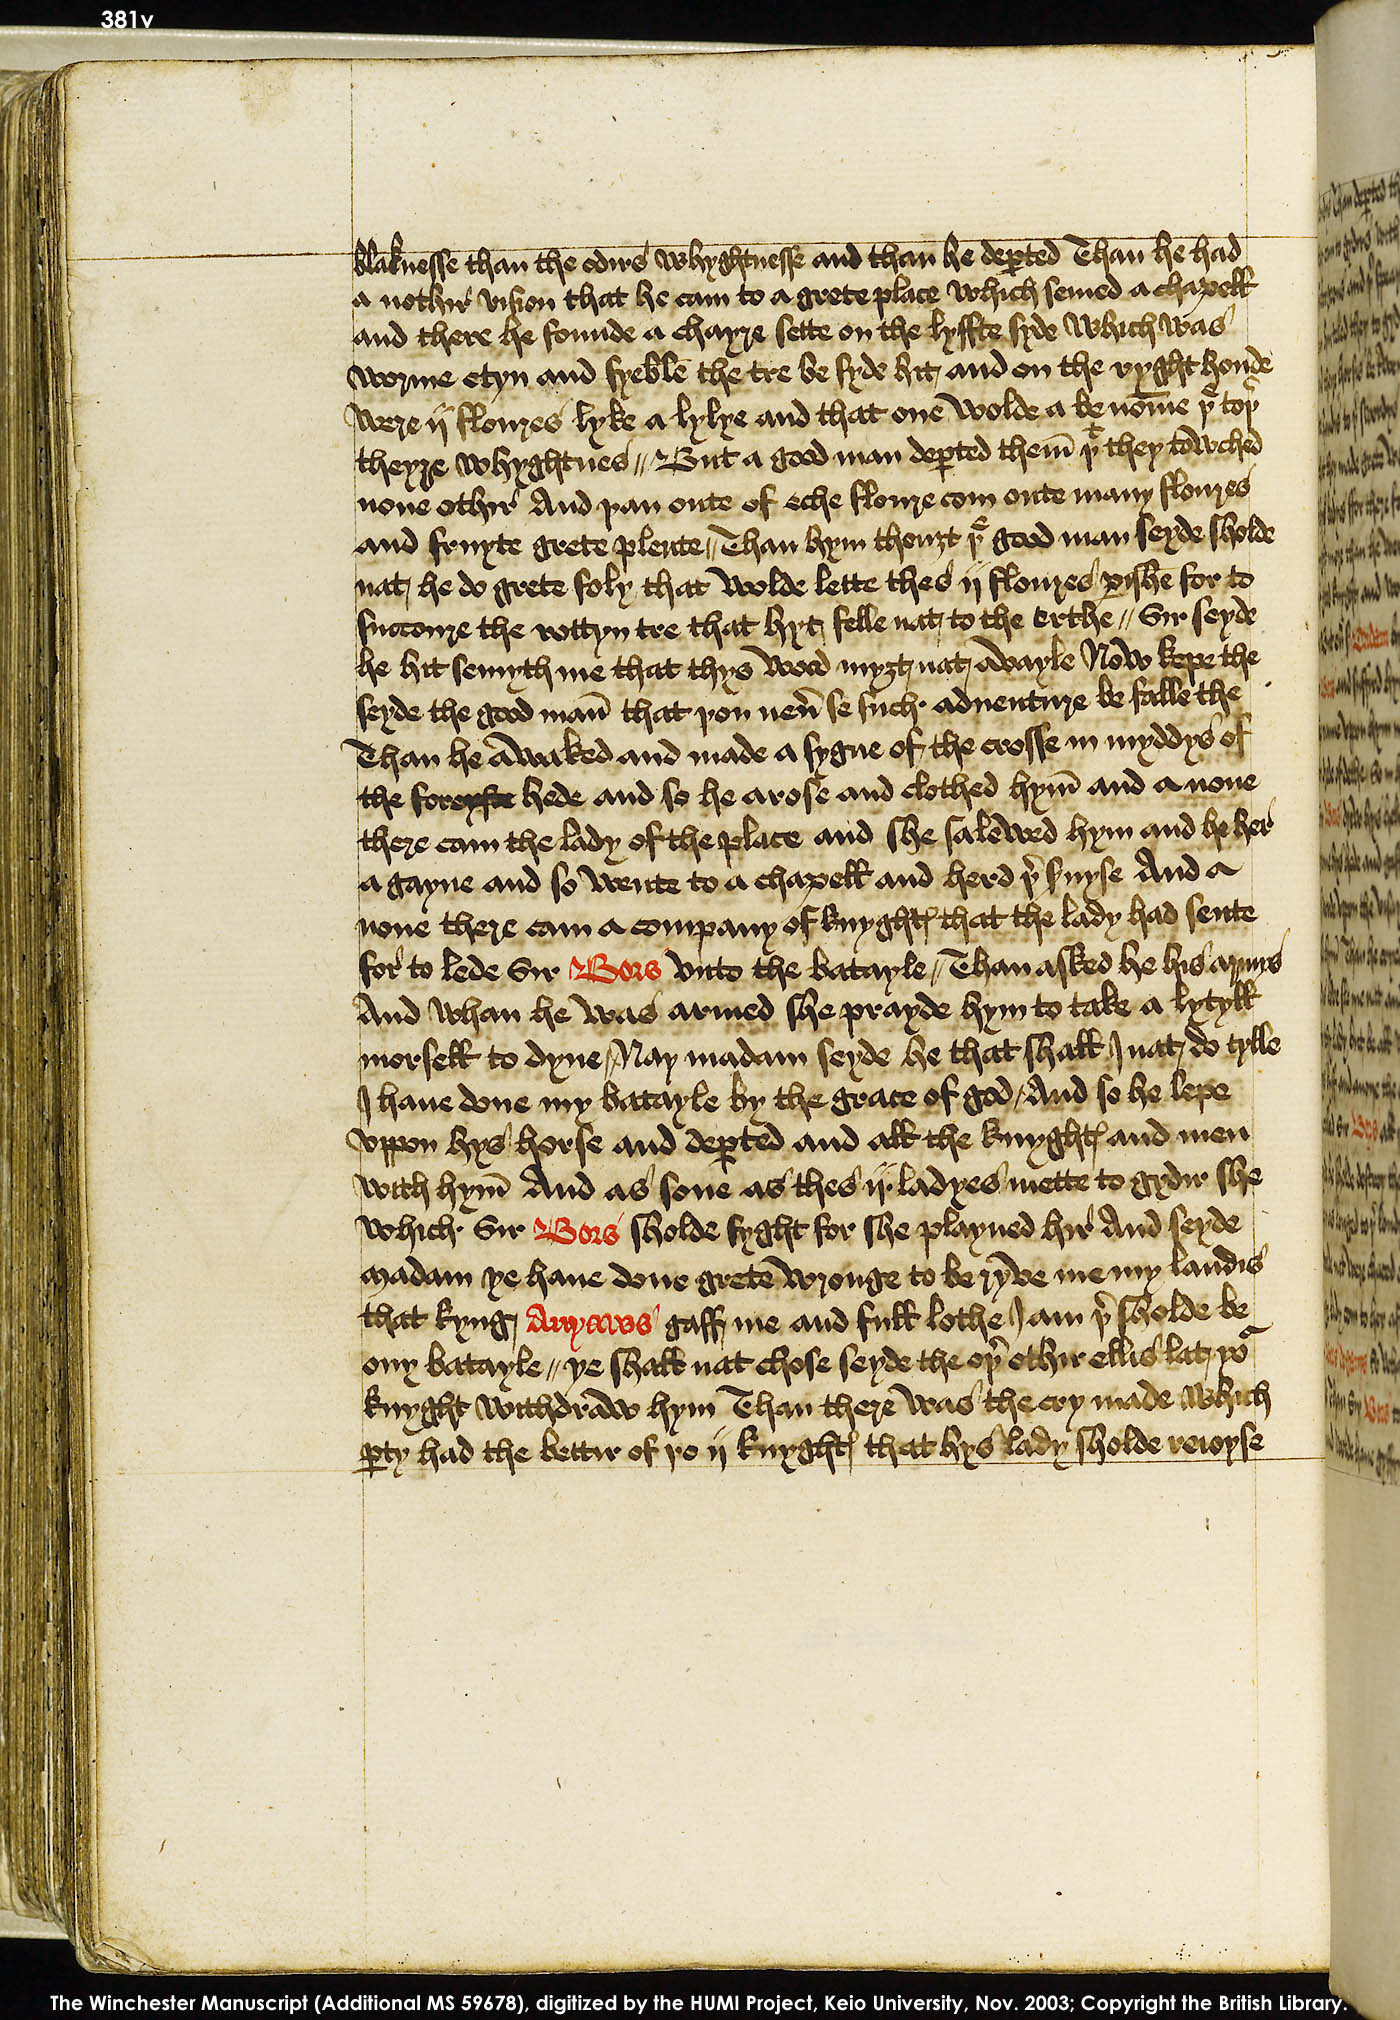 381v
blaknesse than the odirs whyghtnesse and than he dep̄ted Than he had
a nothir vision that he cam to a grete place which semed a chapell
and there he founde a chayre sette on the lyffte syde which was
worme etyn and fyeble the tre be syde hit and on the ryght honde
were ij floures lyke a lylye and that one wolde a be nom̄e þe toþer
theyre whyghtnes // But a good man dep̄ted them̄ þt they towched
none othir And þan oute of eche floure com oute many floures
and fruyte grete plente // Than hym thouȝt þe good man seyde sholde
nat he do grete foly that wolde lette thes ij floures pishe for to
succoure the rottyn tre that hyt felle nat to the erthe // Sir seyde
he hit semyth me that thys wood myȝt nat avayle Now kepe the
seyde the good man̄ that þou neu̾ se such adventure be falle the
Than he awaked and made a sygne of the crosse in myddys of
the fore hede and so he arose and clothed hym̄ and a none
there cam the lady of the place and she salewed hym and he her
a gayne and so wente to a chapell and herd þer s̾uyse And a
none there cam a company of knyghtꝭ that the lady had sente
for to lede Sir Bors vnto the batayle / Than asked he his armys
And whan he was armed she prayde hym to take a lytyll
morsell to dyne / Nay madam seyde he that shall I nat do tylle
I haue done my batayle by the grace of god / And so he lepe
vppon hys horse and dep̄ted and all the knyghtꝭ and men
with hym̄ And as sone as thes ij ladyes mette to gydir she
which Sir Bors sholde fyght for she playned hir And seyde
madam ye haue done grete wronge to be ryve me my landis
that kyng Anyauss gaff me and full lothe I am þer sholde be
ony batayle // ye shall nat chose seyde the oþer othir ellis lat yor
knyght withdraw hym Than there was the cry made which
p̄ty had the bettir of þo ij knyghtꝭ that hys lady sholde reioyse
The Winchester Manuscript (Additional MS 59678), digitized by the HUMI Project, Keio University, Nov. 2003; Copyright the British Library.